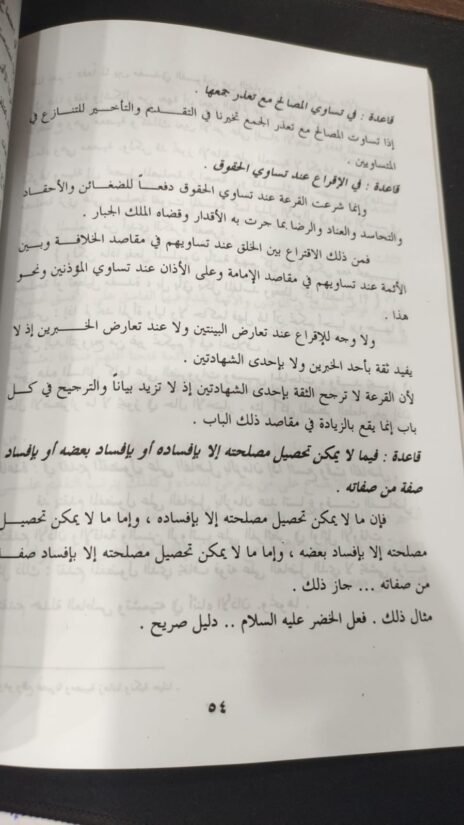 قاعدة : في تساوي المصالح مع تعذر جمعها .
إذا تساوت المصالح مع تعذر الجمع تخيرنا في التقديم والتأخير للتنازع في
المتساويين .
قاعدة : في الإقراع عند تساوي الحقوق .
وإنما شرعت القرعة عند تساوي الحقوق دفعاً للضغائن والأحقاد
والتحاسد والعناد والرضا بما جرت به الأقدار وقضاه الملك الجبار .
فمن ذلك الاقتراع بين الخلق عند تساويهم في مقاصد الخلافة وبين
الأئمة عند تساويهم في مقاصد الإمامة وعلى الأذان عند تساوي المؤذنين ونحو
هذا .
ولا وجه للإقراع عند تعارض البينتين ولا عند تعارض الخبرين إذ لا
يفيد ثقة بأحد الخبرين ولا بإحدى الشهادتين .
لأن القرعة لا ترجح الثقة بإحدى الشهادتين إذ لا تزيد بياناً والترجيح في كل
باب إنما يقع بالزيادة في مقاصد ذلك الباب .
قاعدة : فيما لا يمكن تحصيل مصلحته إلا بإفساده أو بإفساد بعضه أو بإفساد
صفة من صفاته .
فإن ما لا يمكن تحصيل مصلحته إلا بإفساده ، وإما ما لا يمكن تحصيل
مصلحته إلا بإفساد بعضه ، وإما ما لا يمكن تحصيل مصلحته إلا بإفساد صفة
من صفاته ... جاز ذلك .
مثال ذلك . فعل الخضر عليه السلام .. دليل صريح .
٥٤